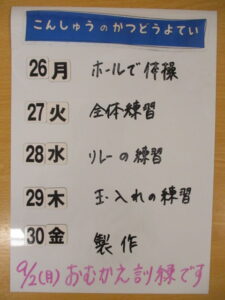 こんしゅうのかつどうよてい
26月 ホールで体操
27火 全体練習
28水 リレーの練習
29木 玉入れの練習
30金 製作
9/2(月)おむかえ訓練です